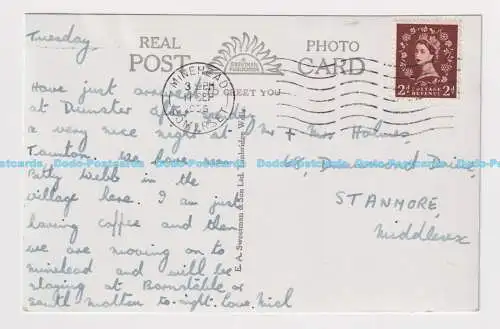 Tuesday
REAL PHOTO
POST CARD
SWEETMAN
MINEHEAD
SOMERSET
TO GREET YOU
POSTAGE
REVENUE
2d 2d
Have just arrived
at Dunster after
a very nice night at
Taunton. We have seen
Betty Webb in the
village here. I am just
having coffee and then
we are moving on to
minehead and will be
staying at Barnstable or
south molton to-night. Love
E. A. Sweetman & Son Ltd. Tunbridge Wells
Mr + Mrs Holmes,
68, Drive,
STANMORE,
Middlesex
Dodo-Postcards Dodo-Postcards Dodo-Postcards Dodo-Postcards